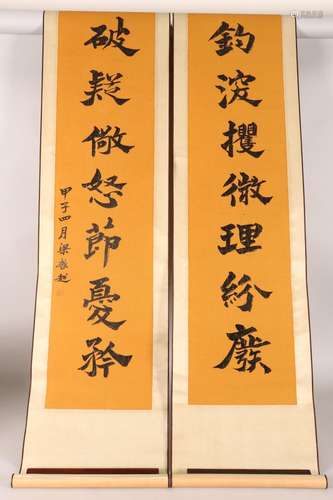 鈎深攫微理紛廢
破疑儆怒節憂矜
甲子四月梁啟超